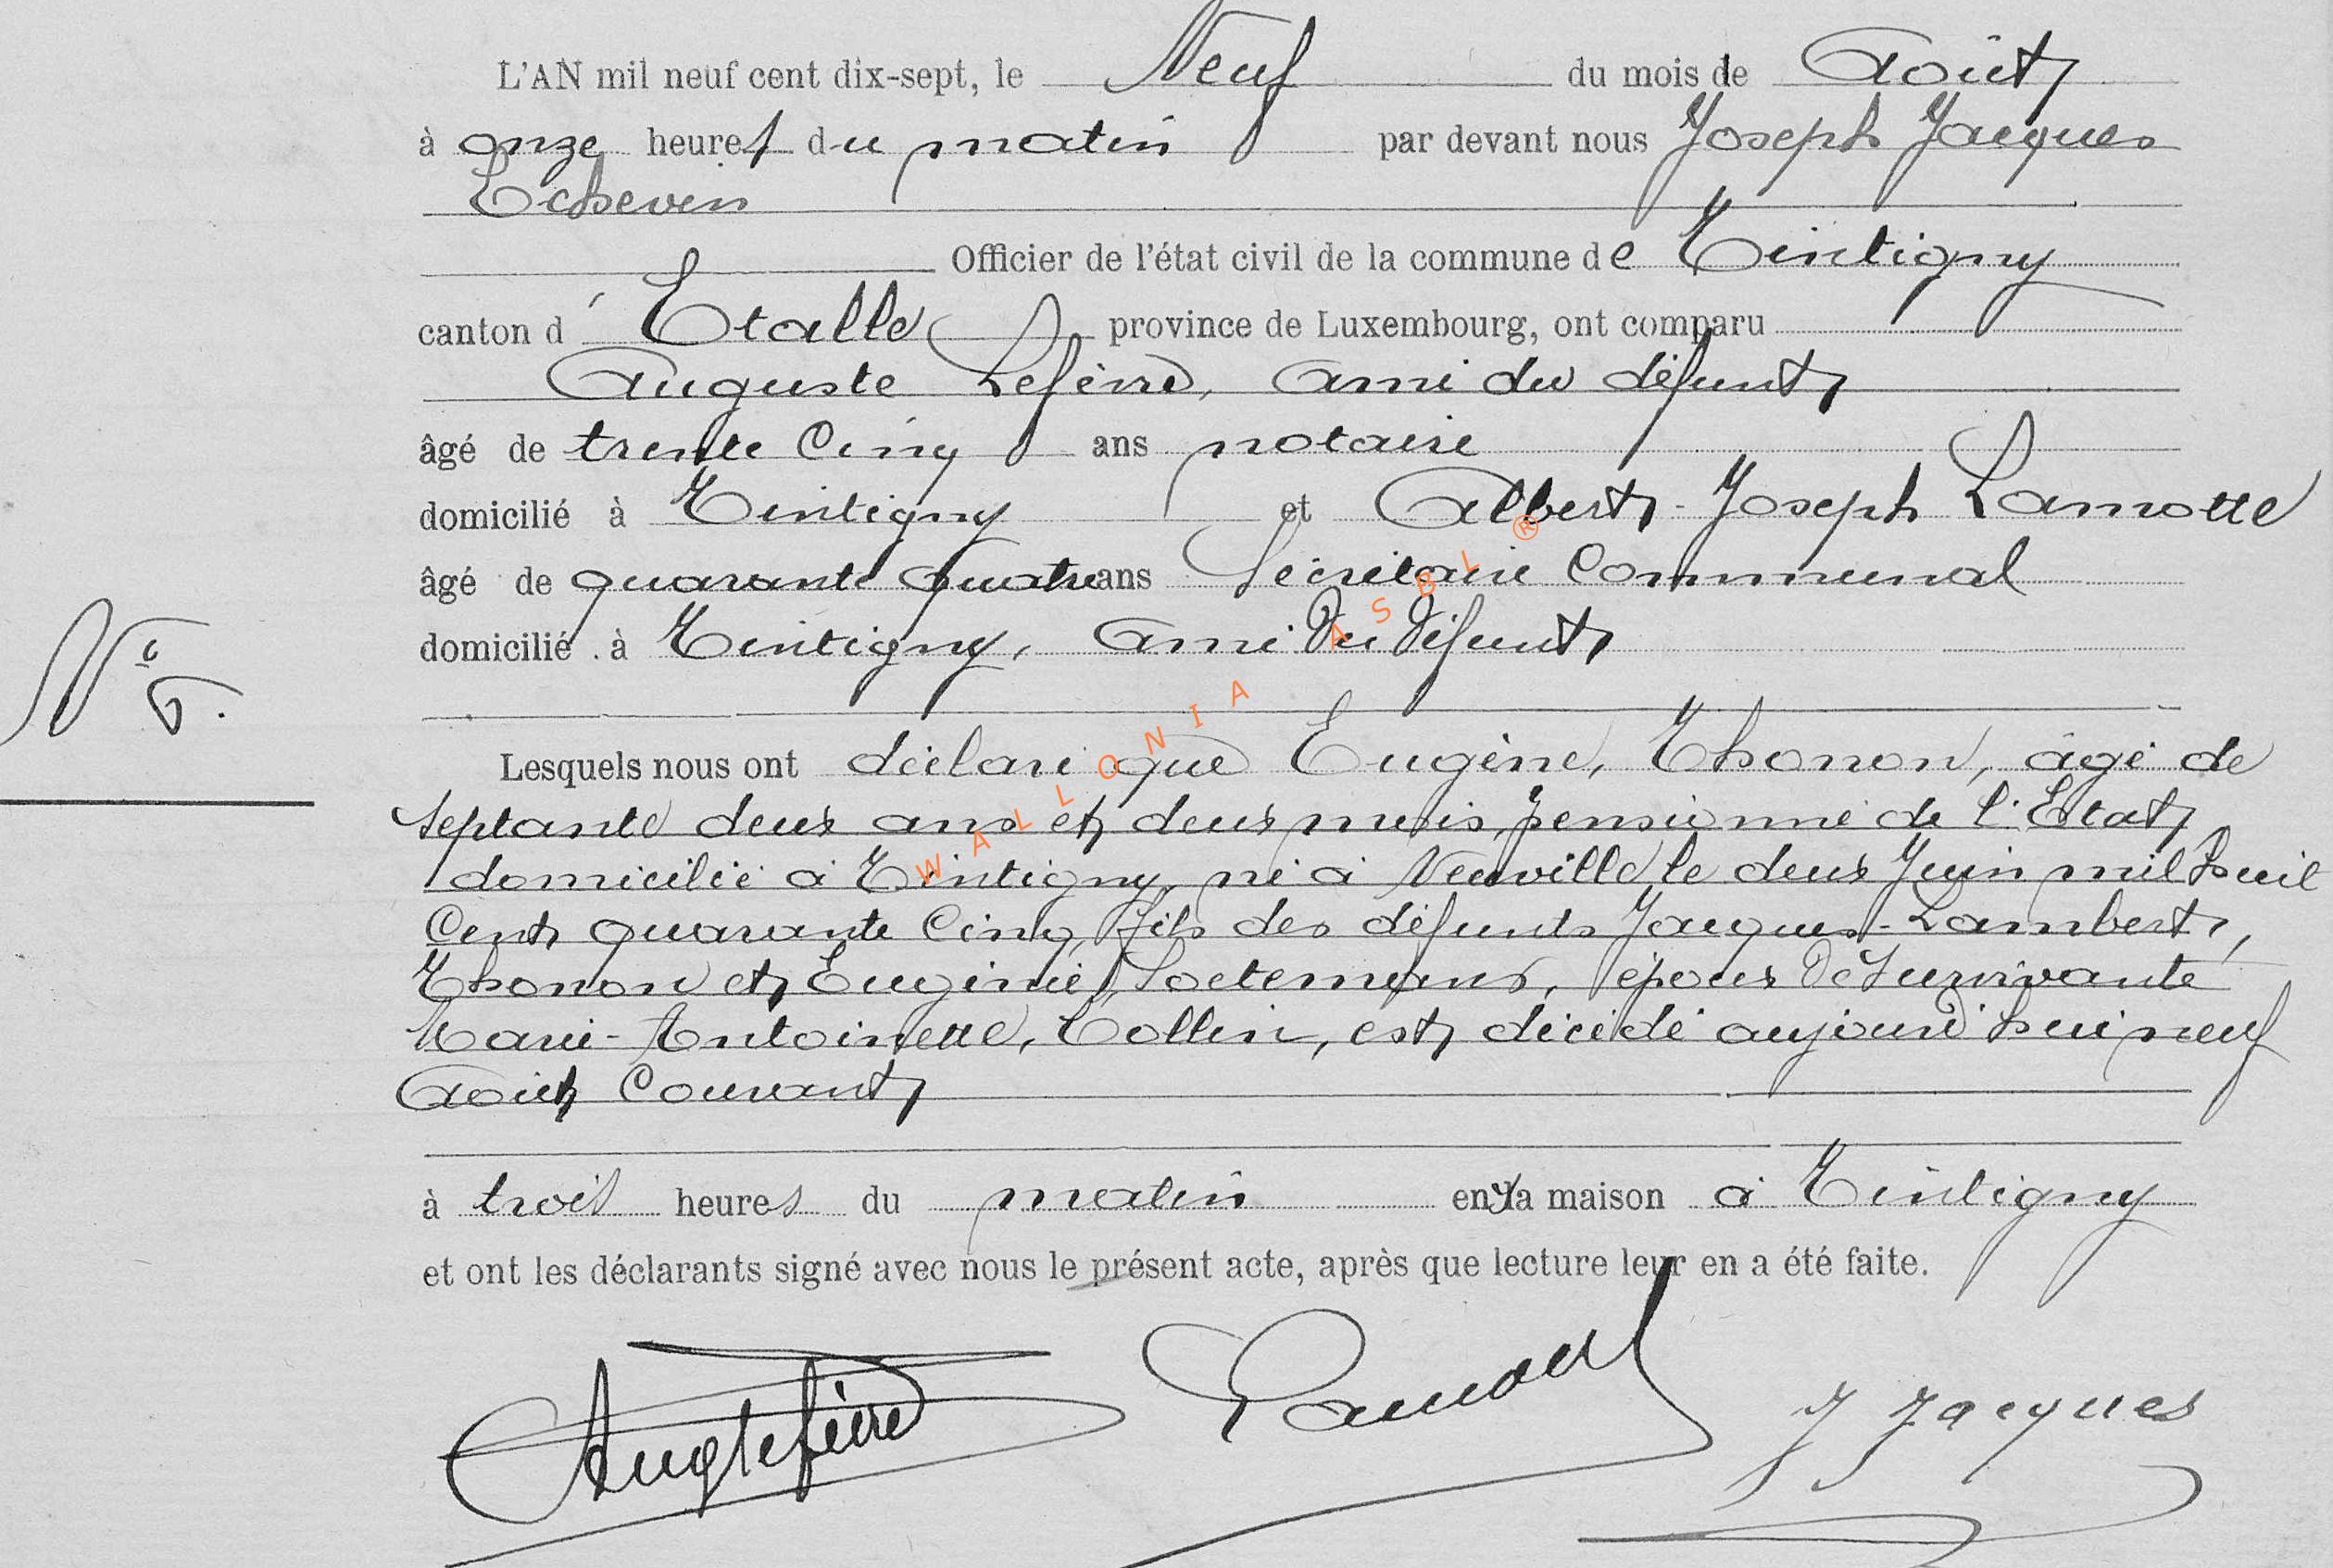 L'AN mil neuf cent dix-sept, le Neuf du mois de Août
à onze heures du matin par devant nous Joseph Jacques
Echevin
Officier de l'état civil de la commune de Tintigny
canton d'Etalle province de Luxembourg, ont comparu
Auguste Lefèvre, ami du défunt
âgé de trente cinq ans notaire
domicilié à Tintigny et Albert-Joseph Lamotte
âgé de quarante quatre ans Secrétaire Communal
domicilié à Tintigny, ami du défunt
N° 6.
Lesquels nous ont déclaré que Eugène, Thonon, âgé de
septante deux ans et deux mois, pensionné de l'Etat
domicilié à Tintigny, né à Neuville le deux Juin mil huit
Cent quarante Cinq, fils des défunts Jacques-Lambert,
Thonon et Eugénie, époux de Survivante
Marie-Antoinette, Collin, est décédé aujourd'hui neuf
Août Courant
à trois heures du matin en sa maison à Tintigny
et ont les déclarants signé avec nous le présent acte, après que lecture leur en a été faite.
Aug Lefèvre Lamotte J Jacques
WALLONIA ASBL ®